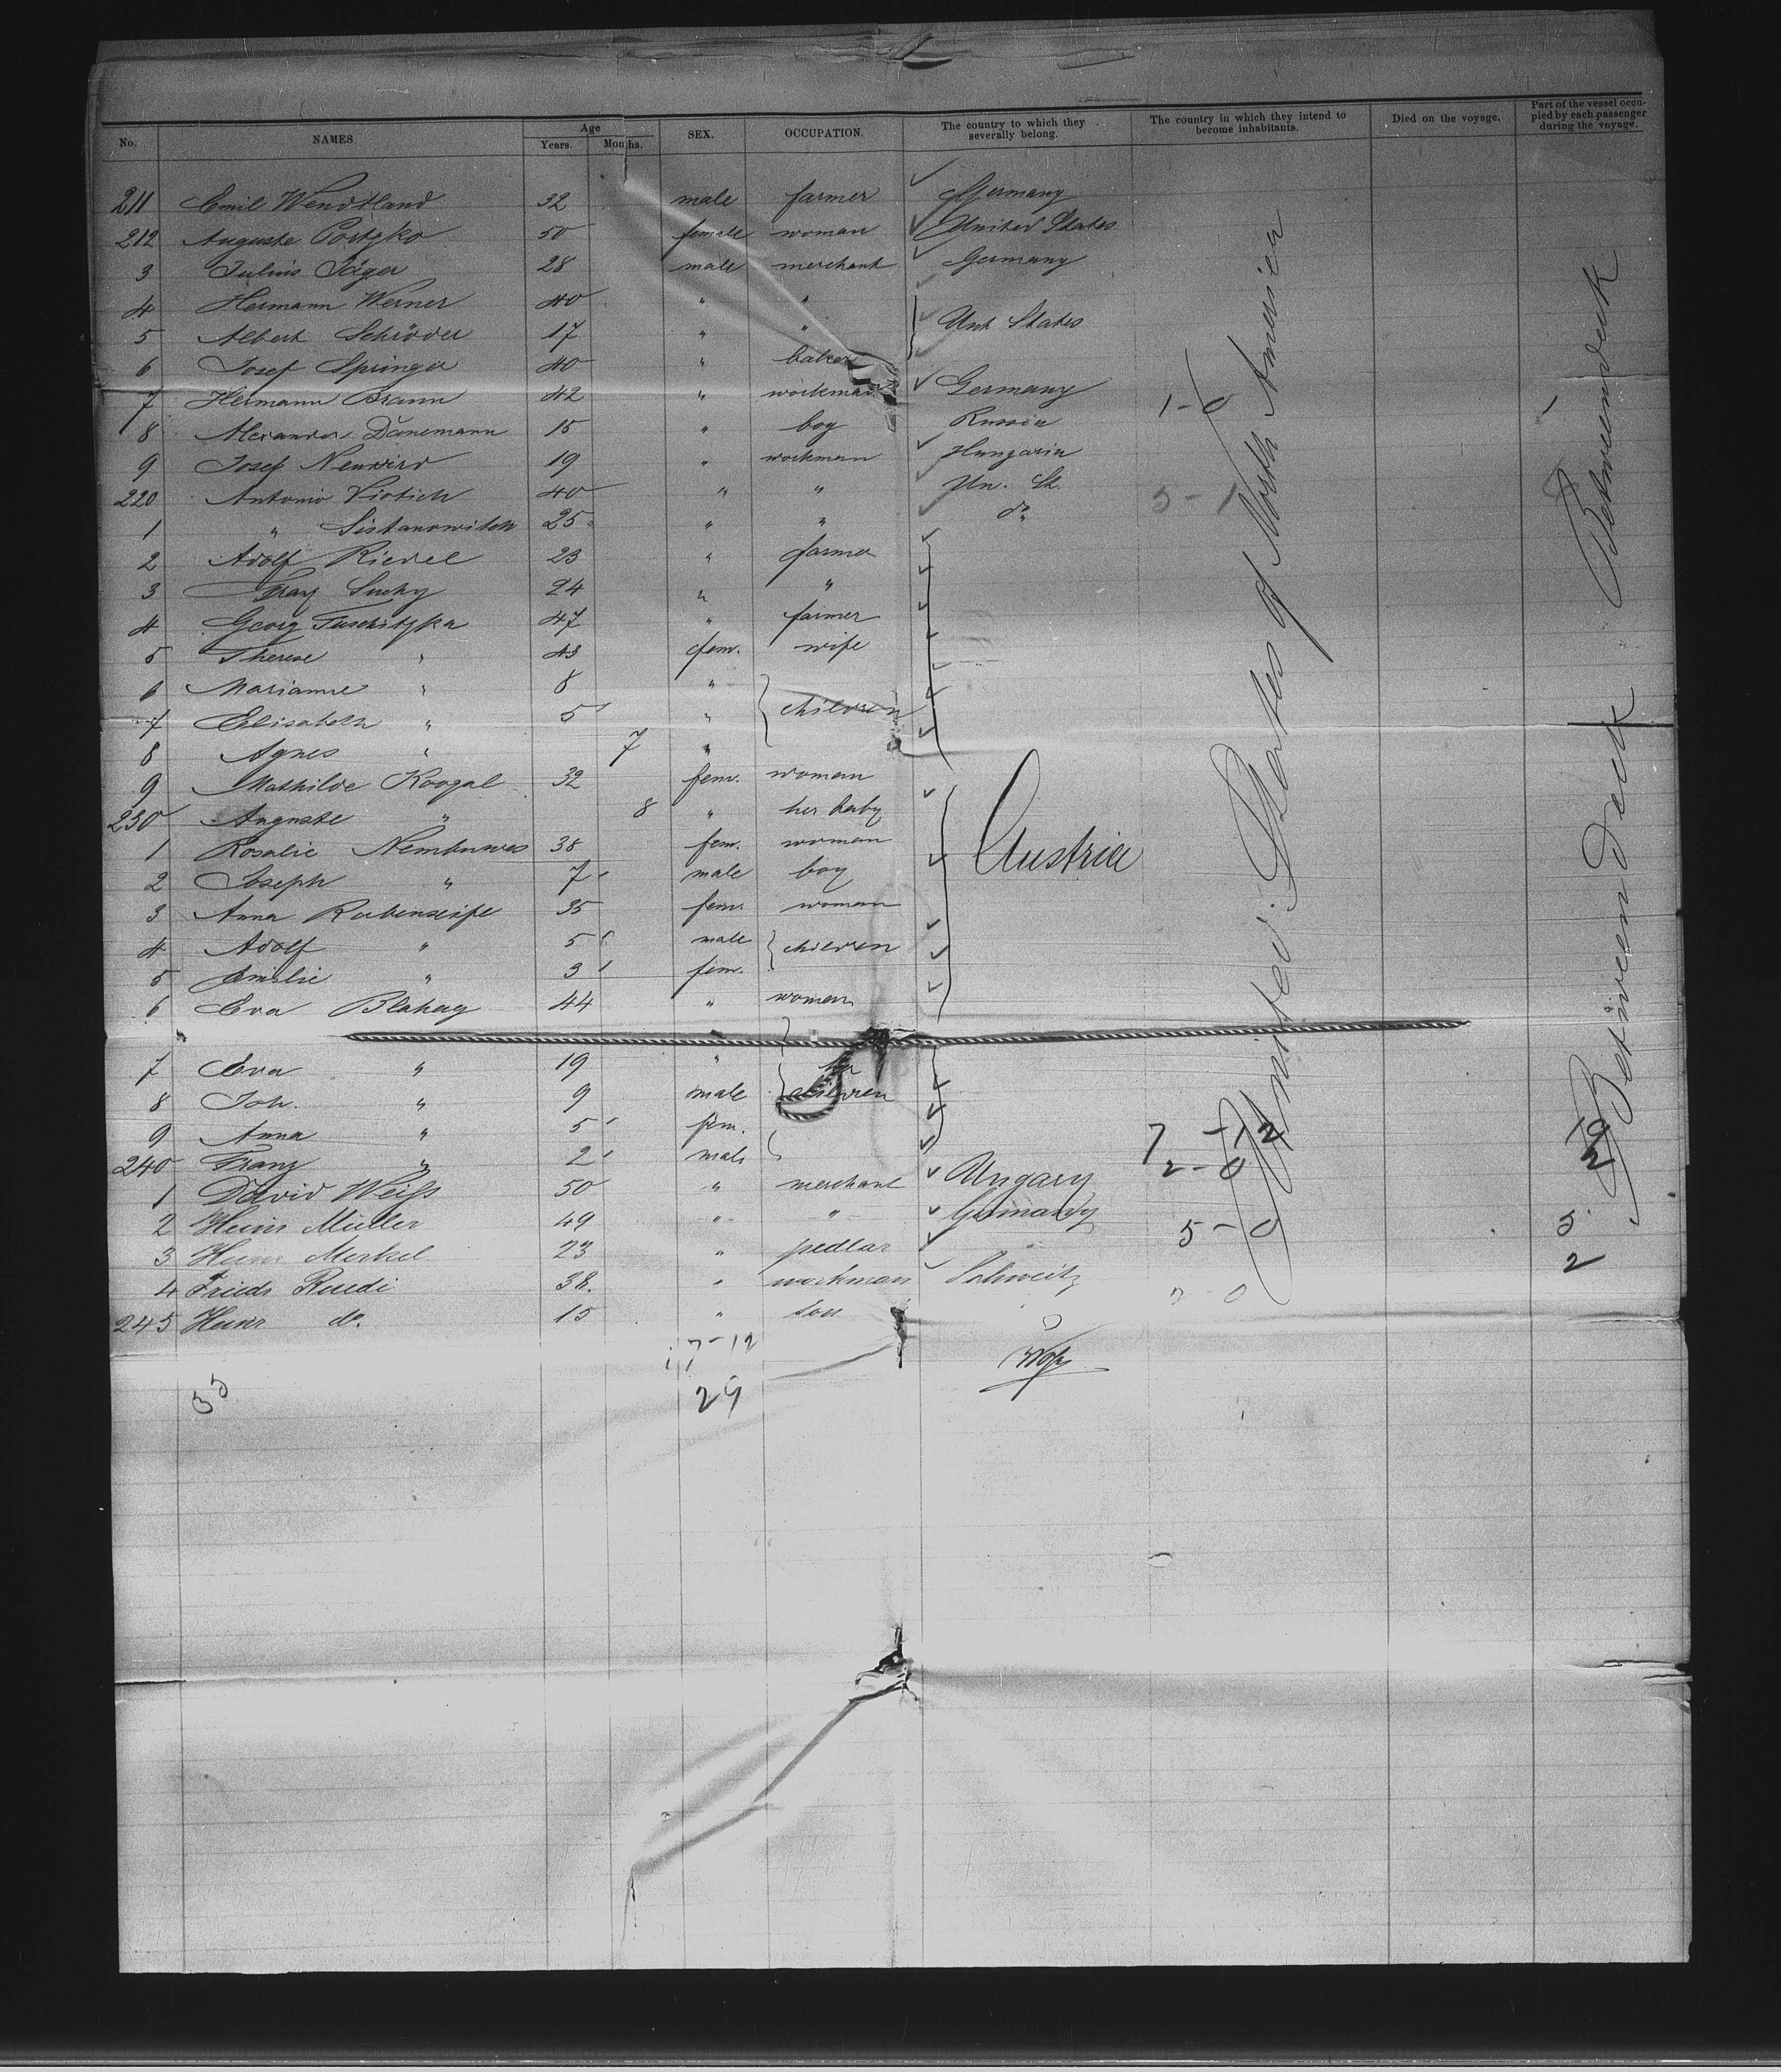 No. NAMES. Age Years. Months. SEX. OCCUPATION. The country to which they severally belong. The country in which they intend to become inhabitants. Died on the voyage. Part of the vessel occupied by each passenger during the voyage.
211 Emil Wendtland 32 male farmer Germany
212 Auguste 50 female woman United States
3 Julius Jäger 28 male merchant Germany
4 Hermann Werner 40 " "
5 Albert Schröder 17 " " Unt States
6 Josef Springer 40 " baker
7 Hermann Braun 42 " workman Germany 1-0
8 Alexander Danemann 15 " boy Russia
9 Josef Neuwird 19 " workman Hungaria
220 Antonio 40 " " Un. St. 5-1
1 " 25 " " do
2 Adolf Riedel 23 " farmer
3 Franz Suchy 24 " "
4 Georg Tuschitzka 47 " farmer
5 Therese " 43 fem. wife
6 Marianne " 8 "
7 Elisabeth " 5 " children
8 Agnes " 7 "
9 Mathilde 32 fem. woman
230 Auguste " 8 " her baby
1 Rosalie 38 fem. woman Austria
2 Joseph " 7 male boy
3 Anna Rubenseife 35 fem. woman
4 Adolf " 5 male children
5 Emilie " 3 fem.
6 Eva Blahay 44 " woman
7 Eva " 19 "
8 Joh. " 9 male children
9 Anna " 5 fem. 7-12
240 Franz " 2 male 2-0
1 David Weiß 50 " merchant Ungary
2 Heinr Müller 49 " " Germany 5-0 5
3 Heinr Merkel 23 " pedlar 2
4 Friedr Ruedi 38. " workman Schweitz 2-0
245 Heinr do. 15 " son
17-12
35 29
United States of North America
Betweendeck
Betweendeck